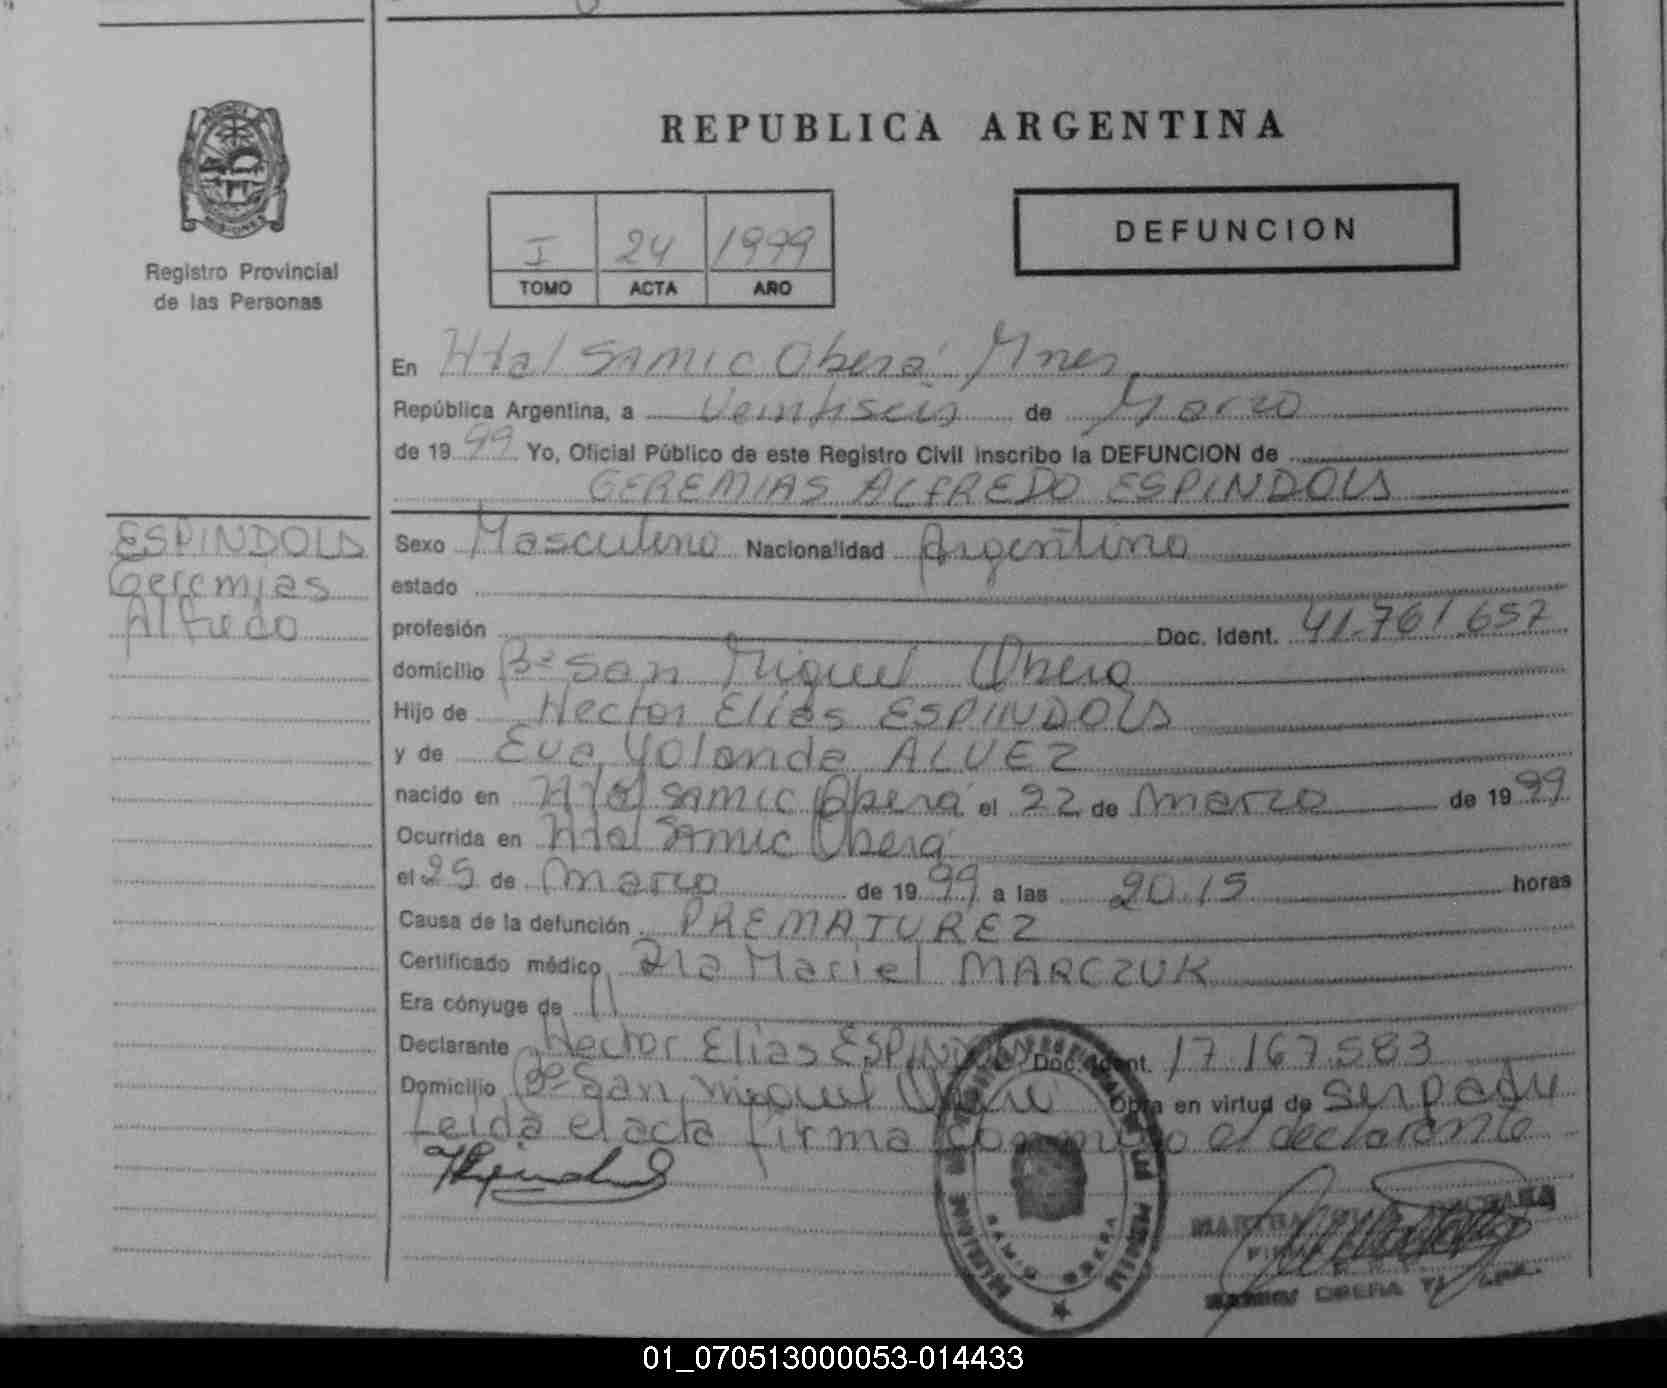 REPUBLICA ARGENTINA
DEFUNCION
I 24 1999
TOMO ACTA AÑO
MISIONES
Registro Provincial
de las Personas
En Htal SAMIC Oberá Mnes
República Argentina, a Veintiseis de Marzo
de 1999 Yo, Oficial Público de este Registro Civil inscribo la DEFUNCION de
GEREMIAS ALFREDO ESPINDOLA
ESPINDOLA
Geremias
Alfredo
Sexo Masculino Nacionalidad Argentino
estado
profesión Doc. Ident. 41.761.657
domicilio Bº San Miguel Oberá
Hijo de Hector Elias ESPINDOLA
y de Eva Yolanda ALVEZ
nacido en Htal SAMIC Oberá el 22 de Marzo de 1999
Ocurrida en Htal SAMIC Oberá
el 25 de Marzo de 1999 a las 20.15 horas
Causa de la defunción PREMATUREZ
Certificado médico Dra Mariel MARCZUK
Era cónyuge de
Declarante Hector Elias ESPINDOLA Doc. Ident. 17.167.583
Domicilio Bº San Miguel Oberá Obra en virtud de ser padre
Leida el acta firma conmigo el declarante
MARTHA
OBERA
01_070513000053-014433